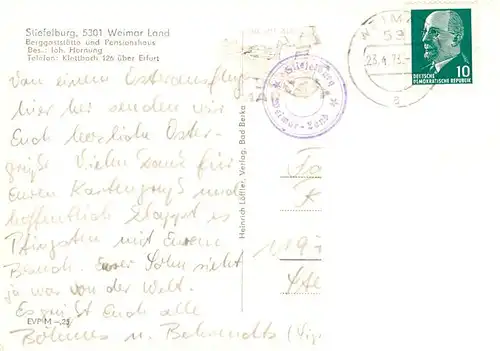 Stiefelburg, 5301 Weimar Land
Berggaststätte und Pensionshaus
Bes.: Joh. Hornung
Telefon: Klettbach 126 über Erfurt
Von einem Osterausflug
hier her senden wir
Euch herzliche Oster-
grüße. Vielen Dank für
Euren Kartengruß und
hoffentlich klappt es
Pfingsten mit Eurem
Besuch. Euer Sohn sieht
ja was von der Welt.
Es grüßt Euch alle
Böhmes u. Behrendts
EVP M -,25
Heinrich Löffler, Verlag, Bad Berka
Stiefelburg
Weimar-Land
23.4.73
53
a
DEUTSCHE
DEMOKRATISCHE REPUBLIK
10
119